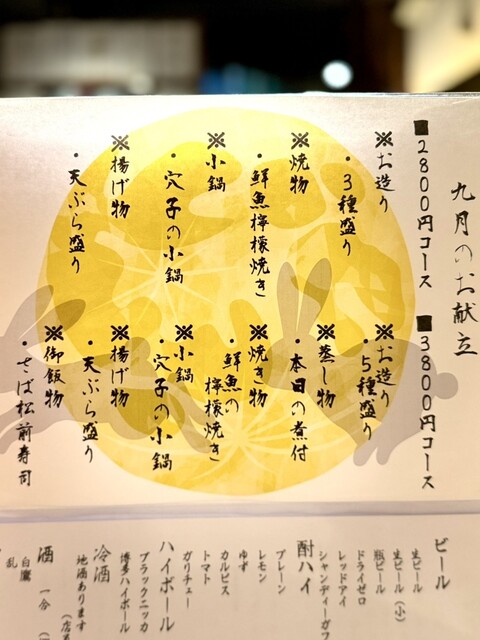 九月のお献立
■2800円コース
※お造り
・3種盛り
※焼物
・鮮魚檸檬焼き
※小鍋
・穴子の小鍋
※揚げ物
・天ぷら盛り
■3800円コース
※お造り
・5種盛り
※蒸し物
・本日の煮付
※焼き物
・鮮魚の
檸檬焼き
※小鍋
・穴子の小鍋
※揚げ物
・天ぷら盛り
※御飯物
・さば松前寿司
ビール
生ビール
生ビール(小)
瓶ビール
ドライゼロ
レッドアイ
シャンディーガフ
酎ハイ
プレーン
レモン
ゆず
カルピス
トマト
ガリチュー
ハイボール
ブラックニッカ
博多ハイボール
冷酒
地酒あります
酒
一合
白鷹
乱